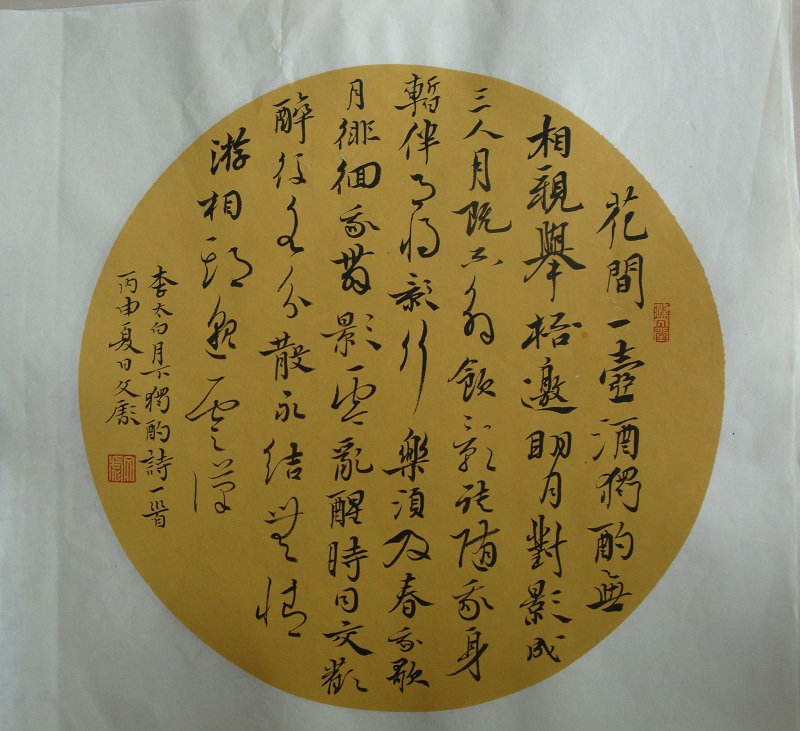 花間一壺酒獨酌無
相親舉杯邀明月對影成
三人月既不解飲影徒隨我身
暫伴月將影行樂須及春我歌
月徘徊我舞影零亂醒時同交歡
醉後各分散永結無情
游相期邈雲漢
李太白月下獨酌詩一首
丙申夏日文